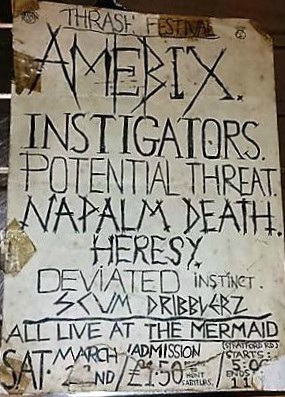 THRASH FESTIVAL
AMEBIX.
INSTIGATORS.
POTENTIAL THREAT.
NAPALM DEATH.
HERESY.
DEVIATED INSTINCT.
SCUM DRIBBLERZ
ALL LIVE AT THE MERMAID
(STRATFORD RD)
SAT. MARCH 22ND / ADMISSION £1.50 / STARTS:
TO HUNT SABTEURS.
ENDS 11